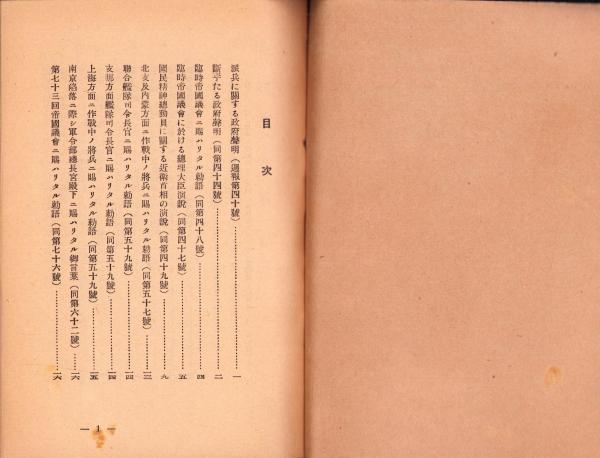 目次
派兵に關する政府聲明(週報第四十號)……一
斷乎たる政府聲明(同第四十四號)……二
臨時帝國議會ニ賜ハリタル勅語(同第四十八號)……四
臨時帝國議會に於ける總理大臣演說(同第四十七號)……五
國民精神總動員に關する近衞首相の演說(同第四十九號)……九
北支及內蒙方面ニ作戰中ノ將兵ニ賜ハリタル勅語(同第五十七號)……一三
聯合艦隊司令長官ニ賜ハリタル勅語(同第五十九號)……一四
支那方面艦隊司令長官ニ賜ハリタル勅語(同第五十九號)……一四
上海方面ニ作戰中ノ將兵ニ賜ハリタル勅語(同第五十九號)……一五
南京陷落ニ際シ軍令部總長宮殿下ニ賜ハリタル御言葉(同第六十二號)……一六
第七十三回帝國議會ニ賜ハリタル勅語(同第七十六號)……一六
— 1 —